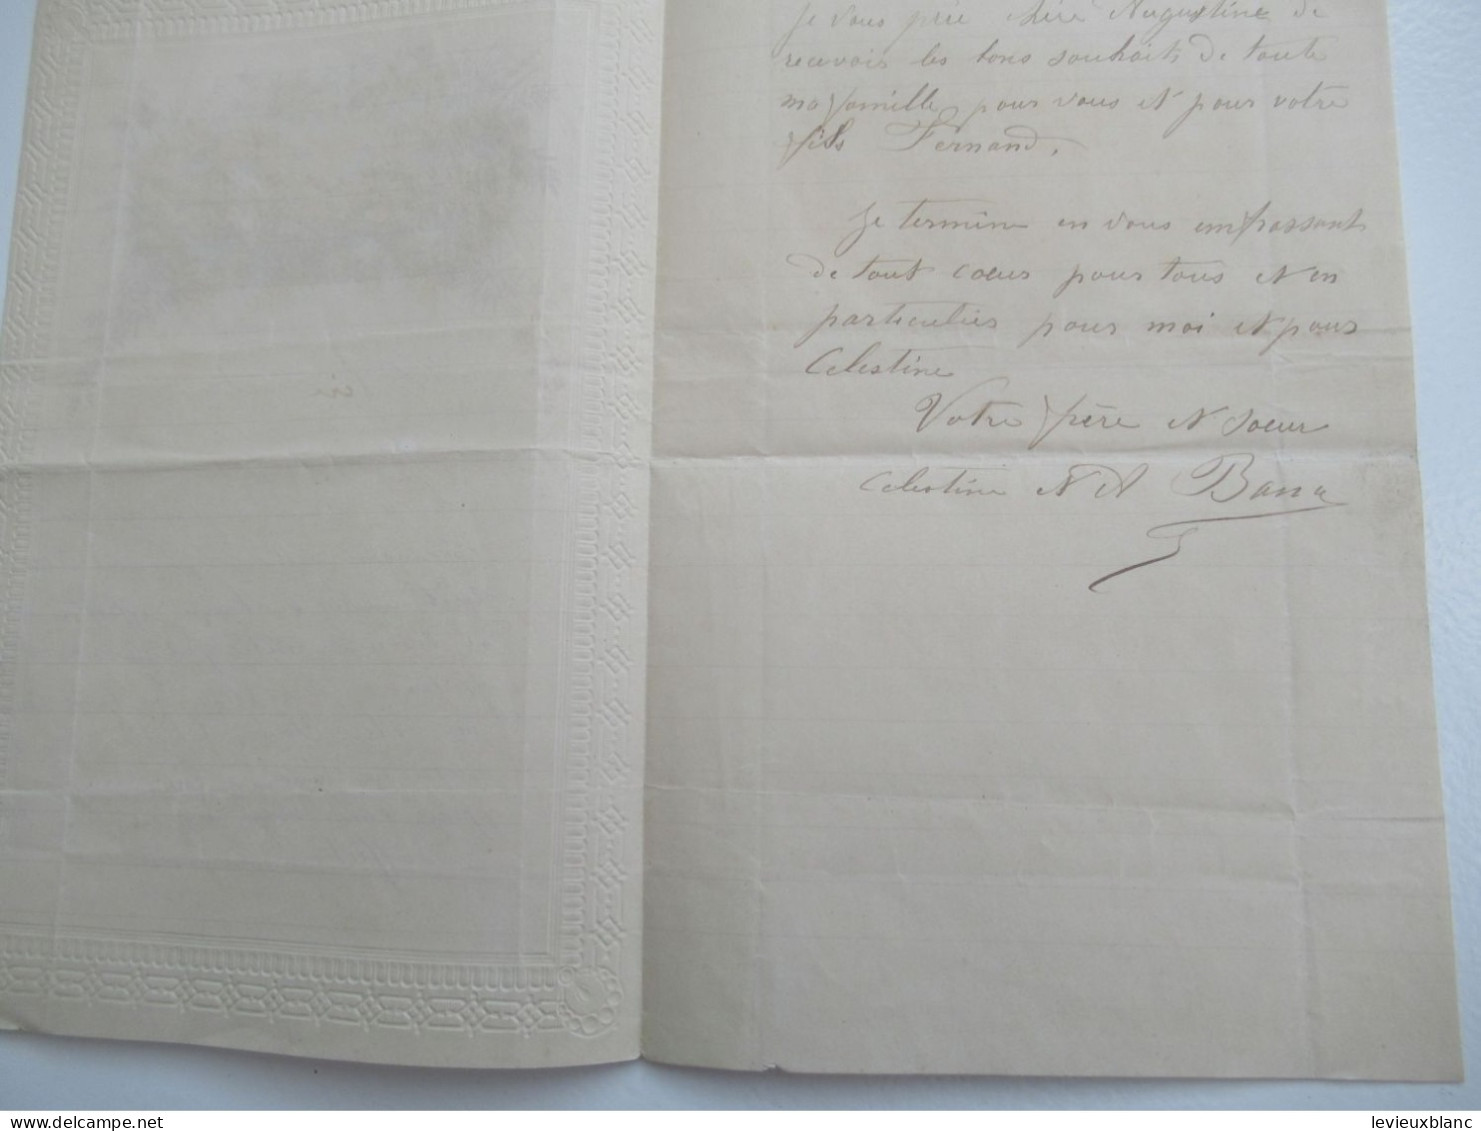 Je vous prie chère Augustine de
recevoir les bons souhaits de toute
ma famille pour vous et pour votre
fils Fernand.
Je termine en vous embrassant
de tout cœur pour tous et en
particulier pour moi et pour
Celestine
Votre frère et Soeur
Celestine et A
levieuxblanc
www.delcampe.net